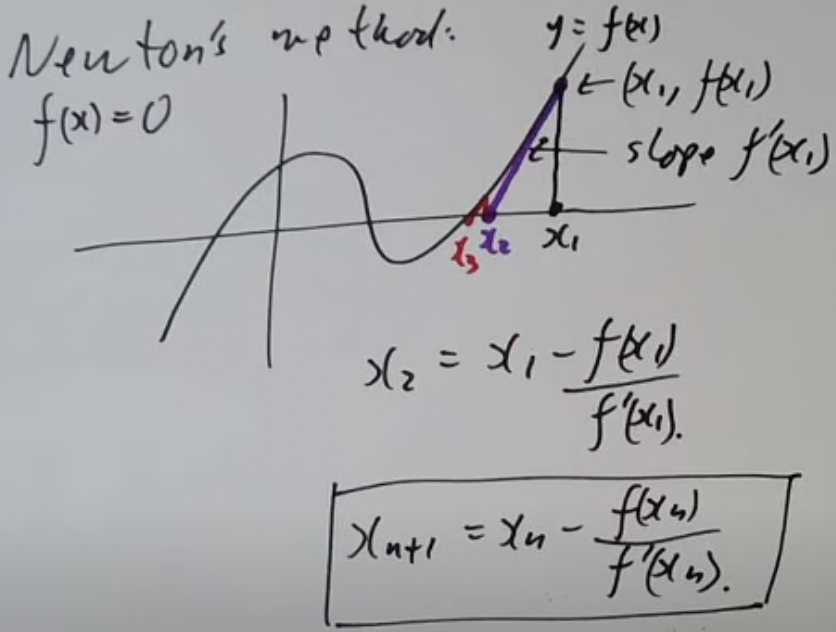 Newton's method:
f(x) = 0
y = f(x)
← (x₁, f(x₁))
slope f'(x₁)
x₃ x₂ x₁
x₂ = x₁ - f(x₁)/f'(x₁).
xₙ₊₁ = xₙ - f(xₙ)/f'(xₙ).